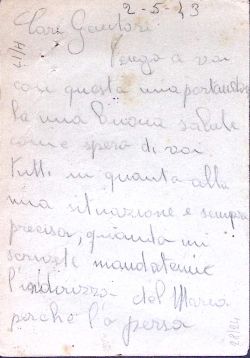 2-5-43
Cari Genitori
Vengo a voi
con questa mia portandovi
la mia buona salute
come spero di voi
tutti in quanto alla
mia situazione è sempre
precisa, quando mi
scrivete mandatemi
l'indirizzo del Mario
perché l'ò persa